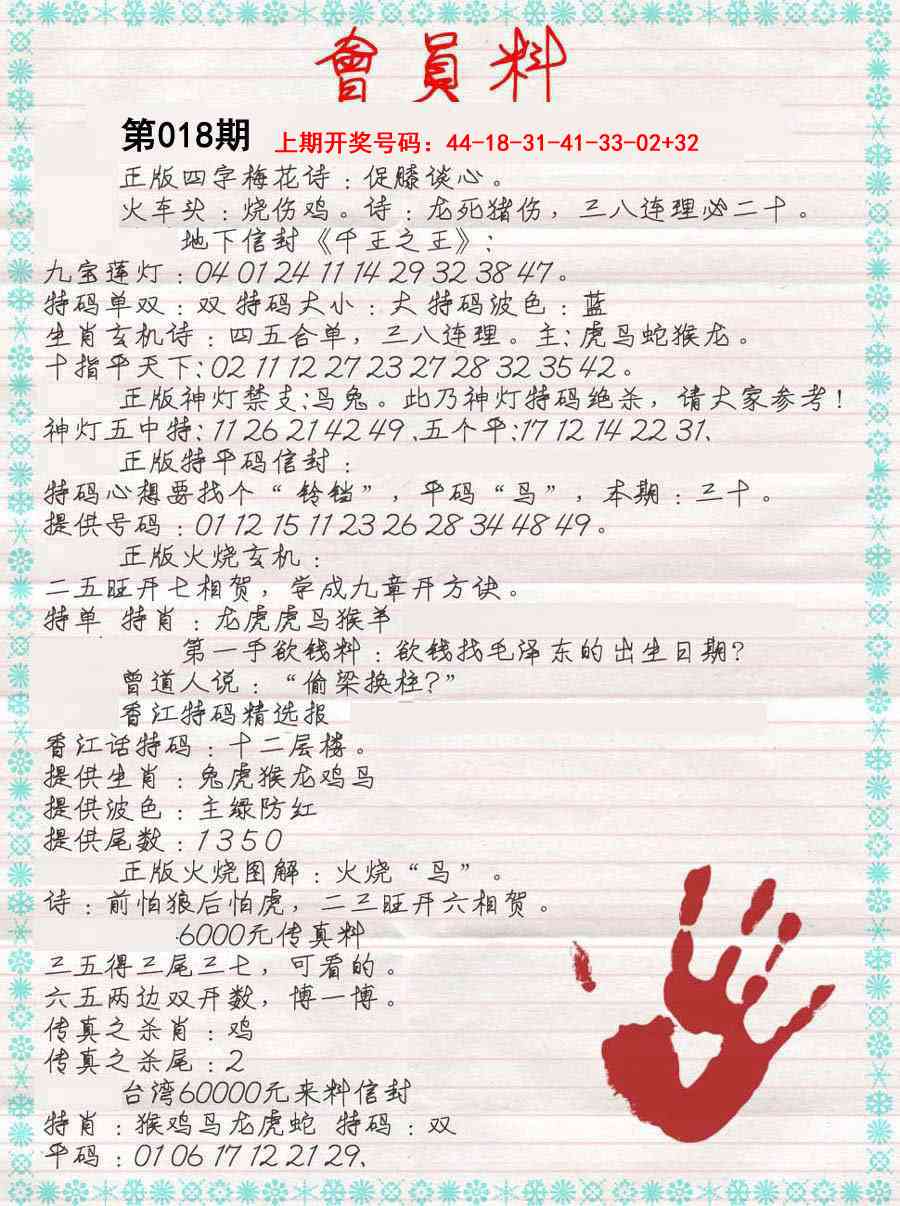 會員料
第018期 上期开奖号码：44-18-31-41-33-02+32
正版四字梅花诗：促膝谈心。
火车头：烧伤鸡。诗：龙死猪伤，三八连理必二十。
地下信封《千王之王》：
九宝莲灯：04 01 24 11 14 29 32 38 47。
特码单双：双 特码大小：大 特码波色：蓝
生肖玄机诗：四五合单，三八连理。主：虎鸟蛇猴龙。
十指平天下：02 11 12 27 23 27 28 32 35 42。
正版神灯禁支：鸟兔。此乃神灯特码绝杀，请大家参考！
神灯五中特：11 26 21 42 49、五个平：17 12 14 22 31、
正版特平码信封：
特码心想要找个“铃铛”，平码“鸟”，本期：三十。
提供号码：01 12 15 11 23 26 28 34 48 49。
正版火烧玄机：
二五旺开七相贺，学成九章开方诀。
特单 特肖：龙虎虎鸟猴羊
第一手欲钱料：欲钱找毛泽东的出生日期？
曾道人说：“偷梁换柱？”
香江特码精选报
香江话特码：十二层楼。
提供生肖：兔虎猴龙鸡鸟
提供波色：主绿防红
提供尾数：1 3 5 0
正版火烧图解：火烧“鸟”。
诗：前怕狼后怕虎，二三旺开六相贺。
6000元传真料
三五得三尾三七，可看的。
六五两边双开数，博一博。
传真之杀肖：鸡
传真之杀尾：2
台湾60000元来料信封
特肖：猴鸡鸟龙虎蛇 特码：双
平码：01 06 17 12 21 29、